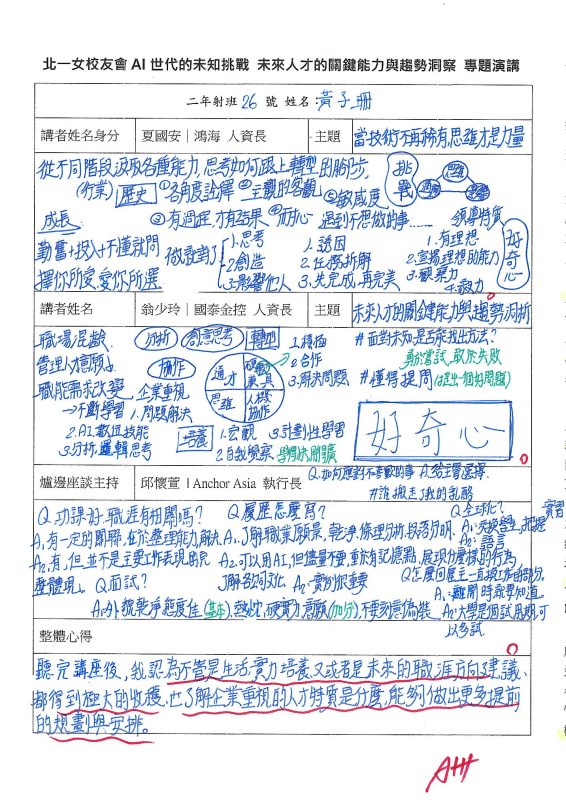 北一女校友會 AI 世代的未知挑戰 未來人才的關鍵能力與趨勢洞察 專題演講
二年射班 26 號 姓名:黃子珊
講者姓名身分 夏國安｜鴻海 人資長 主題 當技術不再稀有,思維才是力量
從不同階段汲取各種能力,思考如何跟上轉型的腳步,
挑戰 思維
(行業) 歷史 ①各角度詮釋 ②主觀的客觀
③有過程,才有結果 ④耐心 ⑤敏感度
成長 遇到不想做的事…… 領導特質
勤奮+投入+不懂就問
擇你所愛,愛你所選
做對了
1.思考
2.創造
3.影響他人
1.誘因
2.任務拆解
3.先完成,再完美
1.有理想
2.宣揚理想的能力
3.觀察力
4.毅力
好奇心
講者姓名 翁少玲｜國泰金控 人資長 主題 未來人才的關鍵能力與趨勢洞析
職場混齡 分析 創意思考 轉型
管理人才意願↓ 操作
職能需求改變 企業重視
→不斷學習 1.問題解決
2.AI、數位技能
3.分析、邏輯思考
通才 思維 人機協作
1.積極
2.合作
3.解決問題
培養 1.宏觀 3.計劃性學習
2.自我覺察
#面對未知,是否能找出方法?
勇於嘗試,敢於失敗
#懂得提問(提出一個好問題)
好奇心
爐邊座談主持 邱懷萱｜Anchor Asia 執行長
Q.如何應對不喜歡的事 A.給主管選擇
#誰搬走了我的乳酪
Q.功課好,職涯有相關嗎?
A1.有一定的關聯,在於整理能力、解決
A2.有,但並不是主要,工作表現的完整體現。
Q.履歷怎麼寫?
A1.了解職業願景,乾淨、條理分析、段落分明、
A2.可以用AI,但儘量不要,重於有記憶點,展現什麼樣的行為,
了解公司文化 A3.實例很重要
Q.全球化? 實習
A1.交換學生,把握
A2.語言
Q.面試?
A1.外貌乾淨,態度佳(基本)、熱忱、硬實力、意願(加分),不要刻意偽裝
A1.離開時就要知道
A2.大學是個試用期,可以多試
整體心得
聽完講座後,我認為不管是生活、實力培養又或者是未來的職涯方向建議,
都得到極大的收穫,也了解企業重視的人才特質是什麼,能夠做出更多提前
的規劃與安排。
A+++